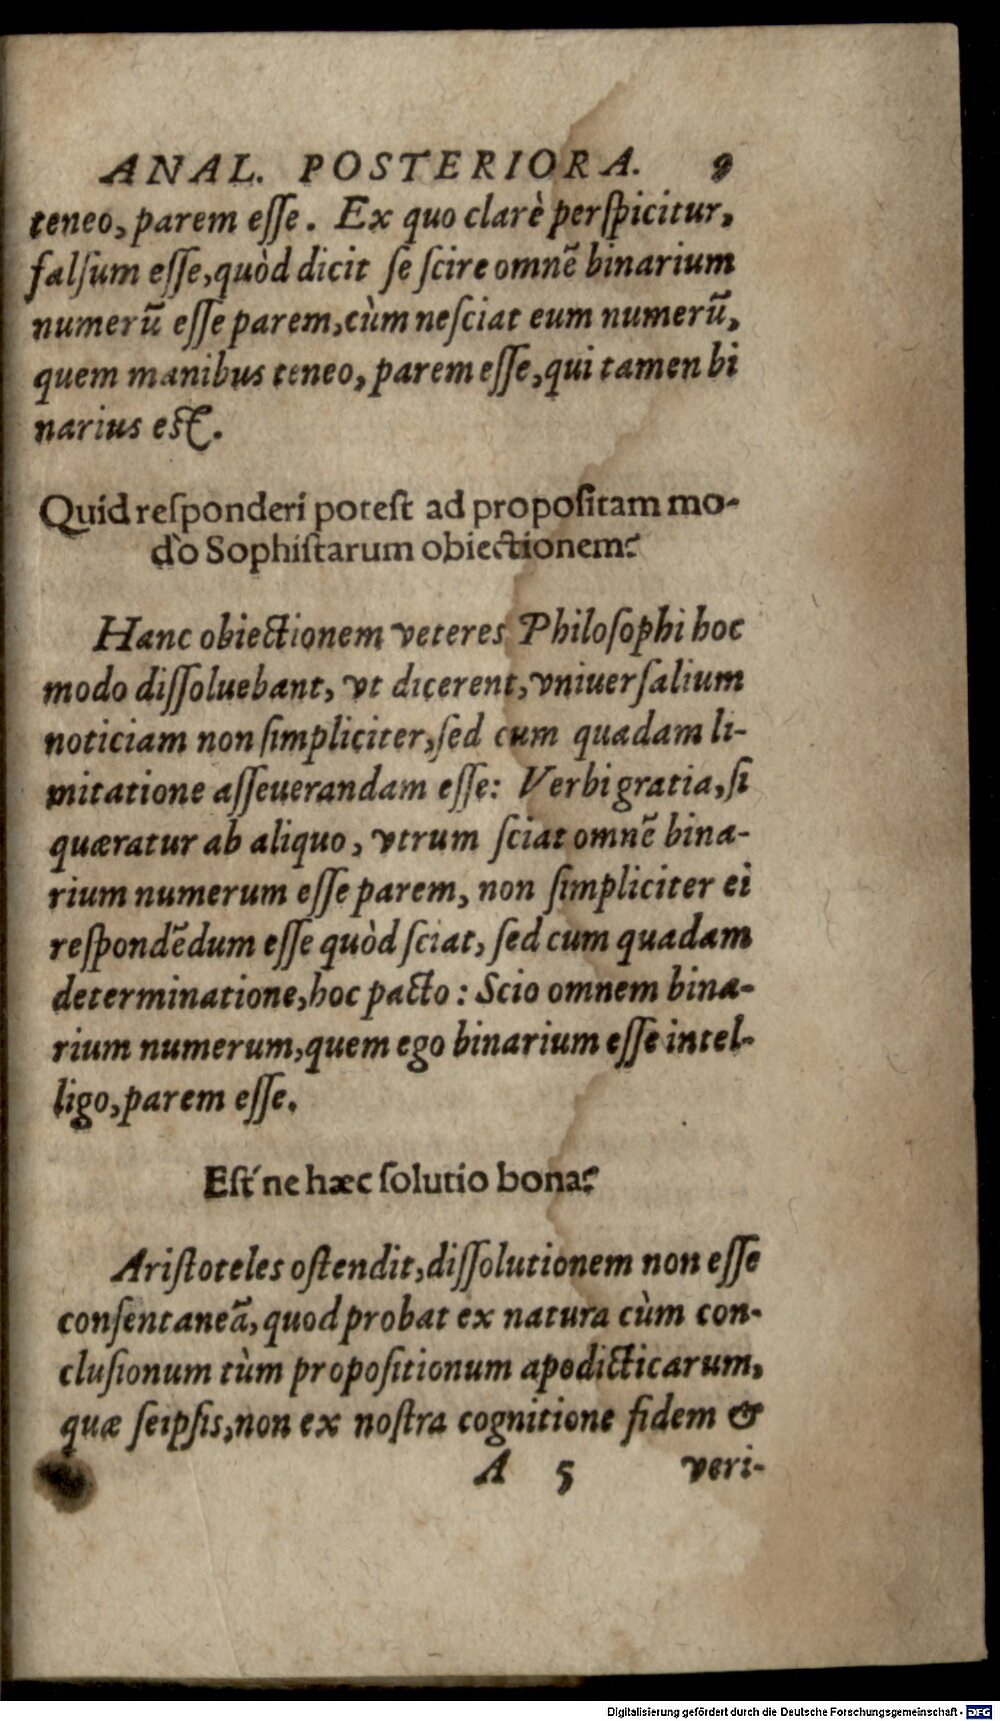 ANAL. POSTERIORA. 9
teneo, parem eſſe. Ex quo clarè perſpicitur,
falſum eſſe, quòd dicit ſe ſcire omnẽ binarium
numerũ eſſe parem, cùm neſciat eum numerũ,
quem manibus teneo, parem eſſe, qui tamen bi
narius eſt.
Quid reſponderi poteſt ad propoſitam mo-
dò Sophiſtarum obiectionem?
Hanc obiectionem veteres Philoſophi hoc
modo diſſoluebant, vt dicerent, vniuerſalium
noticiam non ſimpliciter, ſed cum quadam li-
mitatione aſſeuerandam eſſe: Verbi gratia, ſi
quæratur ab aliquo, vtrum ſciat omnẽ bina-
rium numerum eſſe parem, non ſimpliciter ei
reſpondẽdum eſſe quòd ſciat, ſed cum quadam
determinatione, hoc pacto: Scio omnem bina-
rium numerum, quem ego binarium eſſe intel-
ligo, parem eſſe.
Eſt'ne hæc ſolutio bona?
Ariſtoteles oſtendit, diſſolutionem non eſſe
conſentaneã, quod probat ex natura cùm con-
cluſionum tùm propoſitionum apodicticarum,
quæ ſeipſis, non ex noſtra cognitione fidem &
A 5 veri-
Digitalisierung gefördert durch die Deutsche Forschungsgemeinschaft - DFG